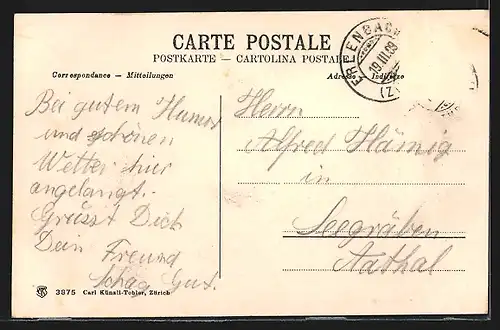 CARTE POSTALE
POSTKARTE – CARTOLINA POSTALE
Correspondance – Mitteilungen
Adresse – Indirizzo
ERLENBACH
19 III 09
(Z
Bei gutem Humor
und schönen
Wetter hier
angelangt.
Grüsst Dich
Dein Freund
Gut.
Herrn
Alfred Hämig
in
Seegräben
Aathal
3875 Carl Künzli-Tobler, Zürich